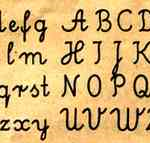 efg A B C D
l m H I J K
qrst N O P Q
zxy U V W